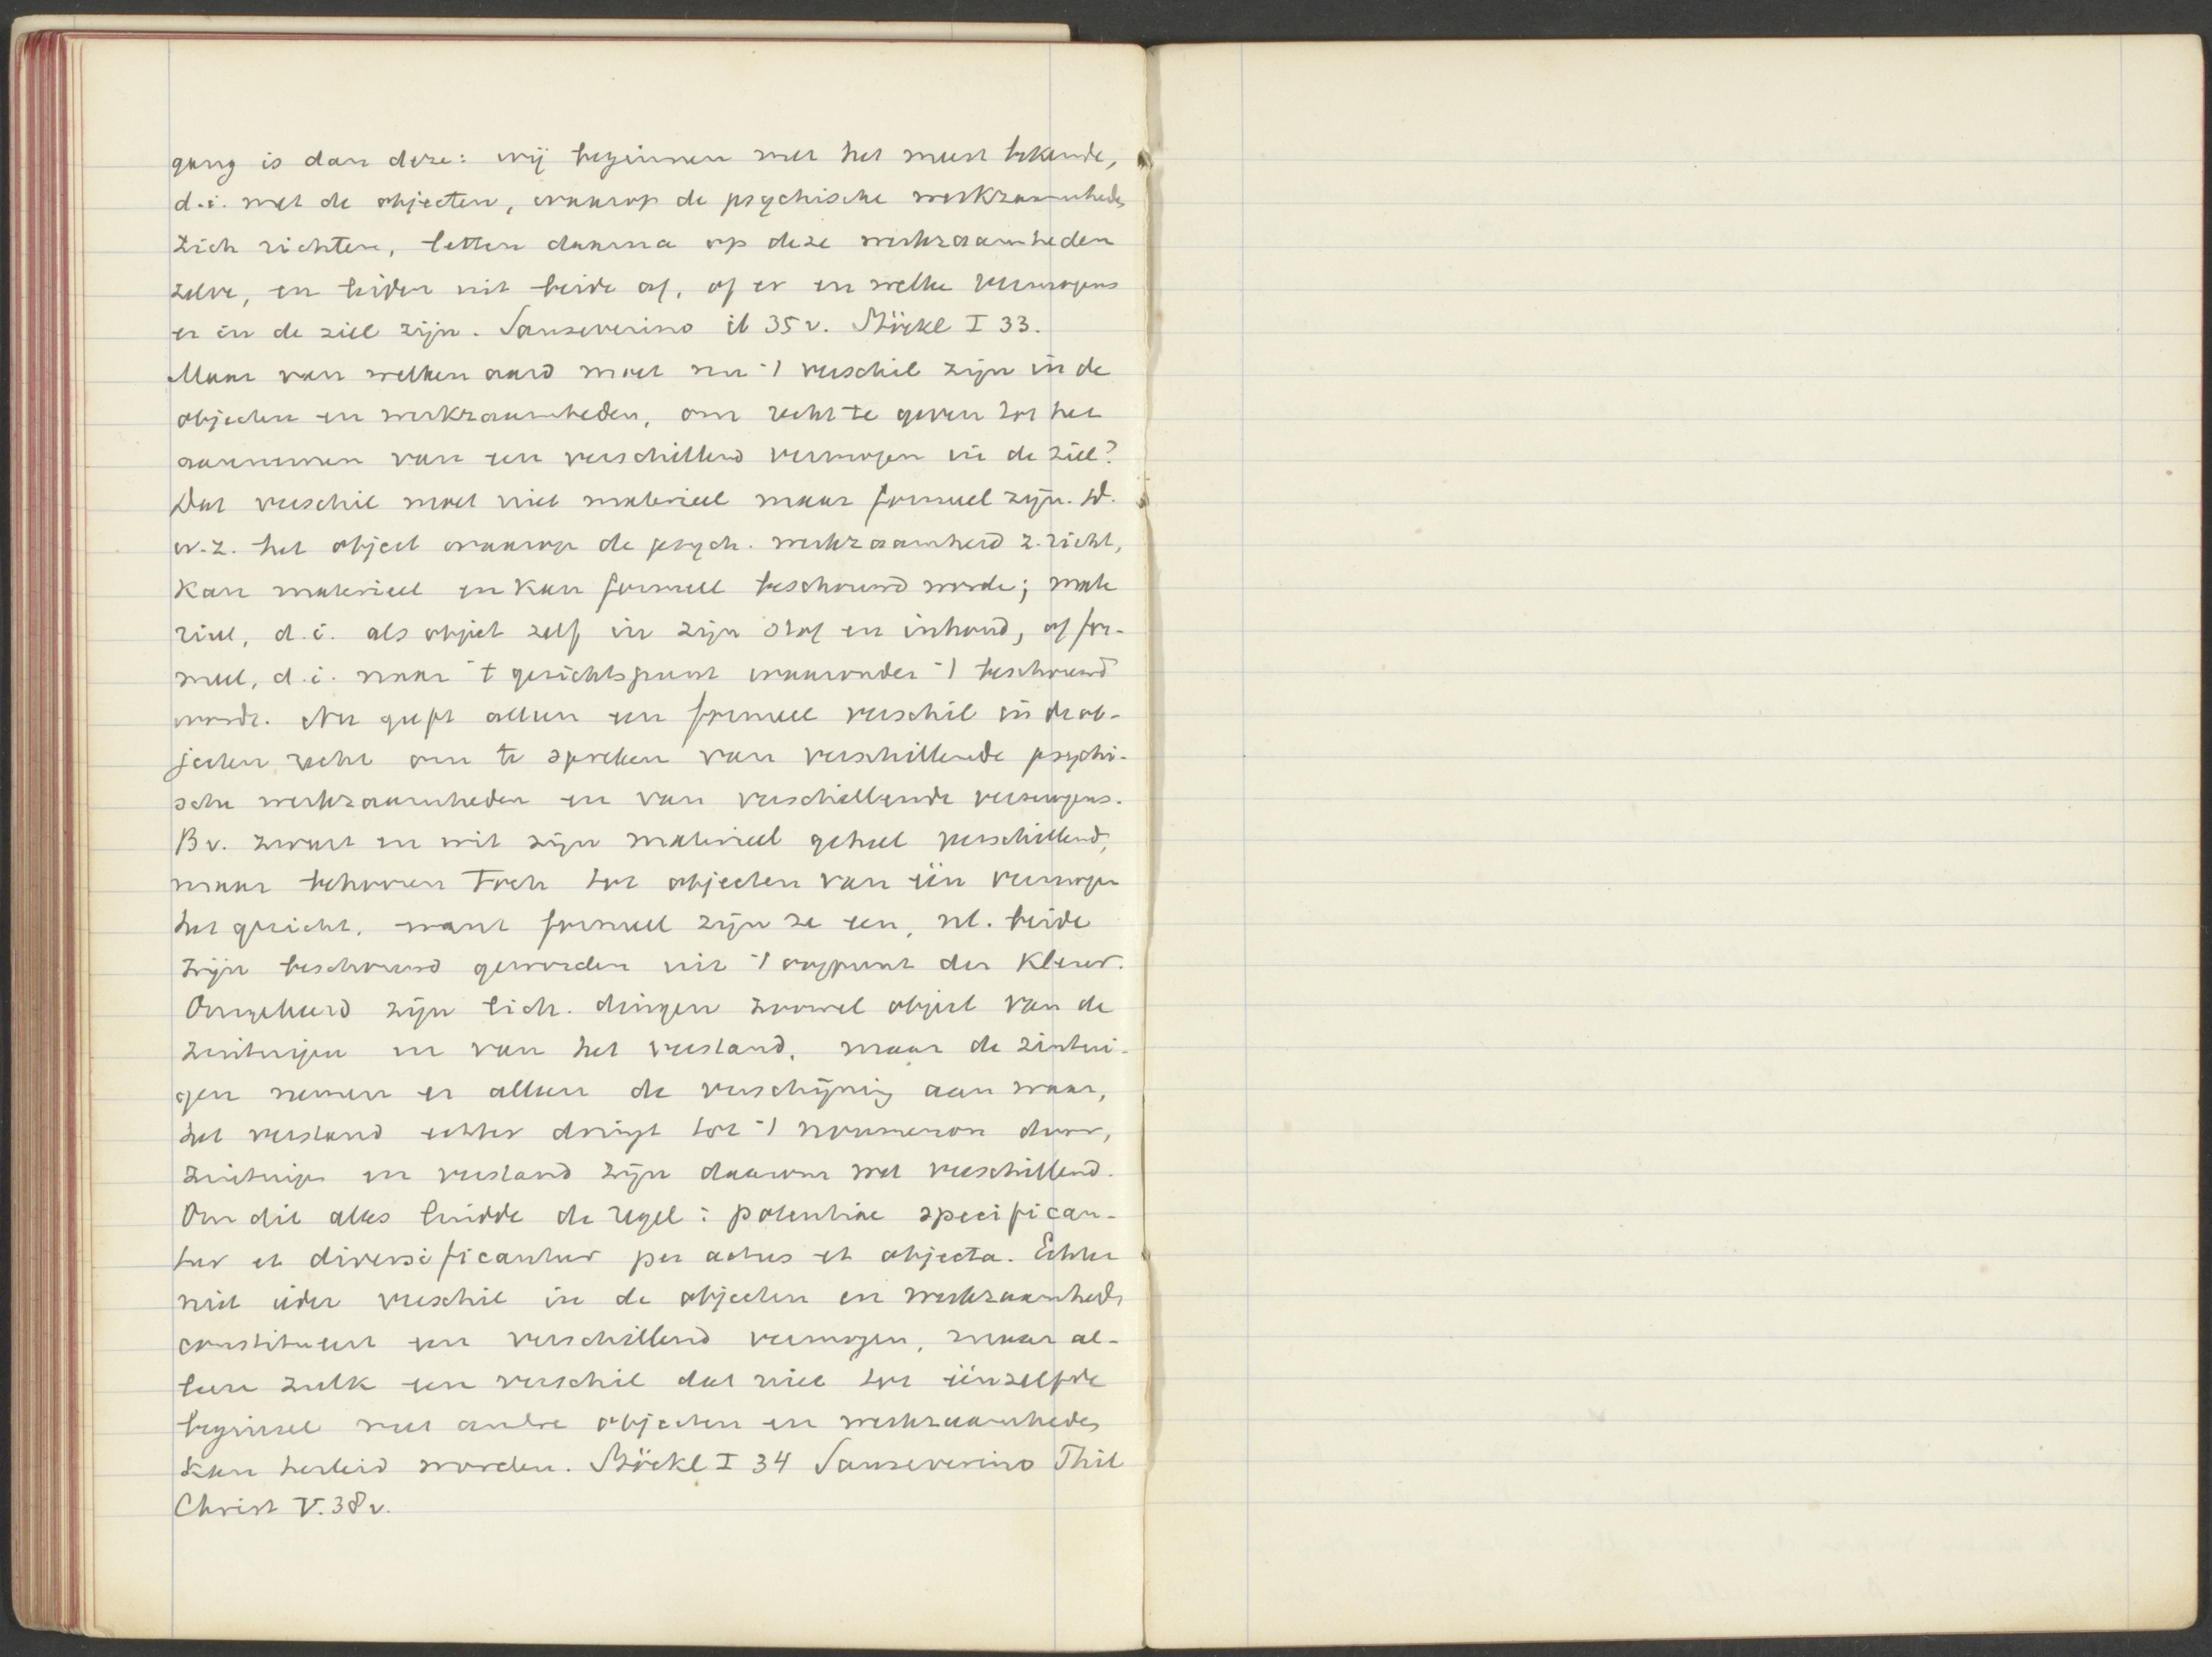 gang is dan deze: wij beginnen met het meest bekende,
d.i. met de objecten, waarop de psychische werkzaamheden
zich richten, letten daarna op deze werkzaamheden
zelve, en leiden uit beide af, of er en welke vermogens
er in de ziel zijn. Sanseverino ib 35 v. Stöckl I 33.
Maar van welken aard moet nu 't verschil zijn in de
objecten en werkzaamheden, om recht te geven tot het
aannemen van een verschillend vermogen in de ziel?
Dat verschil moet niet materieel maar formeel zijn. D.
w.z. het object waarop de psych. werkzaamheid z. richt,
kan materieel en kan formeel beschouwd worde; mate
rieel, d.i. als object zelf in zijn stof en inhoud, of for-
meel, d.i. naar 't gezichtspunt waaronder 't beschouwd
wordt. Nu geeft alleen een formeel verschil in de ob-
jecten recht om te spreken van verschillende psychi-
sche werkzaamheden en van verschillende vermogens.
Bv. zwart en wit zijn materieel geheel verschillend,
maar behooren toch tot objecten van één vermogen
het gezicht, want formeel zijn ze een, nl. beide
zijn beschouwd geworden uit 't oogpunt der kleur.
Omgekeerd zijn lich. dingen zoowel object van de
zintuigen en van het verstand, maar de zintui-
gen nemen er alleen de verschijning aan waar,
het verstand echter dringt tot 't noumenon door,
zintuigen en verstand zijn daarom wel verschillend.
Om dit alles luidde de regel: potentiae specifican-
tur et diversificantur per actus et objecta. Echter
niet ieder verschil in de objecten en werkzaamheden
constitueert een verschillend vermogen, maar al-
leen zulk een verschil dat niet tot éénzelfde
beginsel met andre objecten en werkzaamheden
kan herleid worden. Stöckl I 34 Sanseverino Phil
Christ V. 38 v.